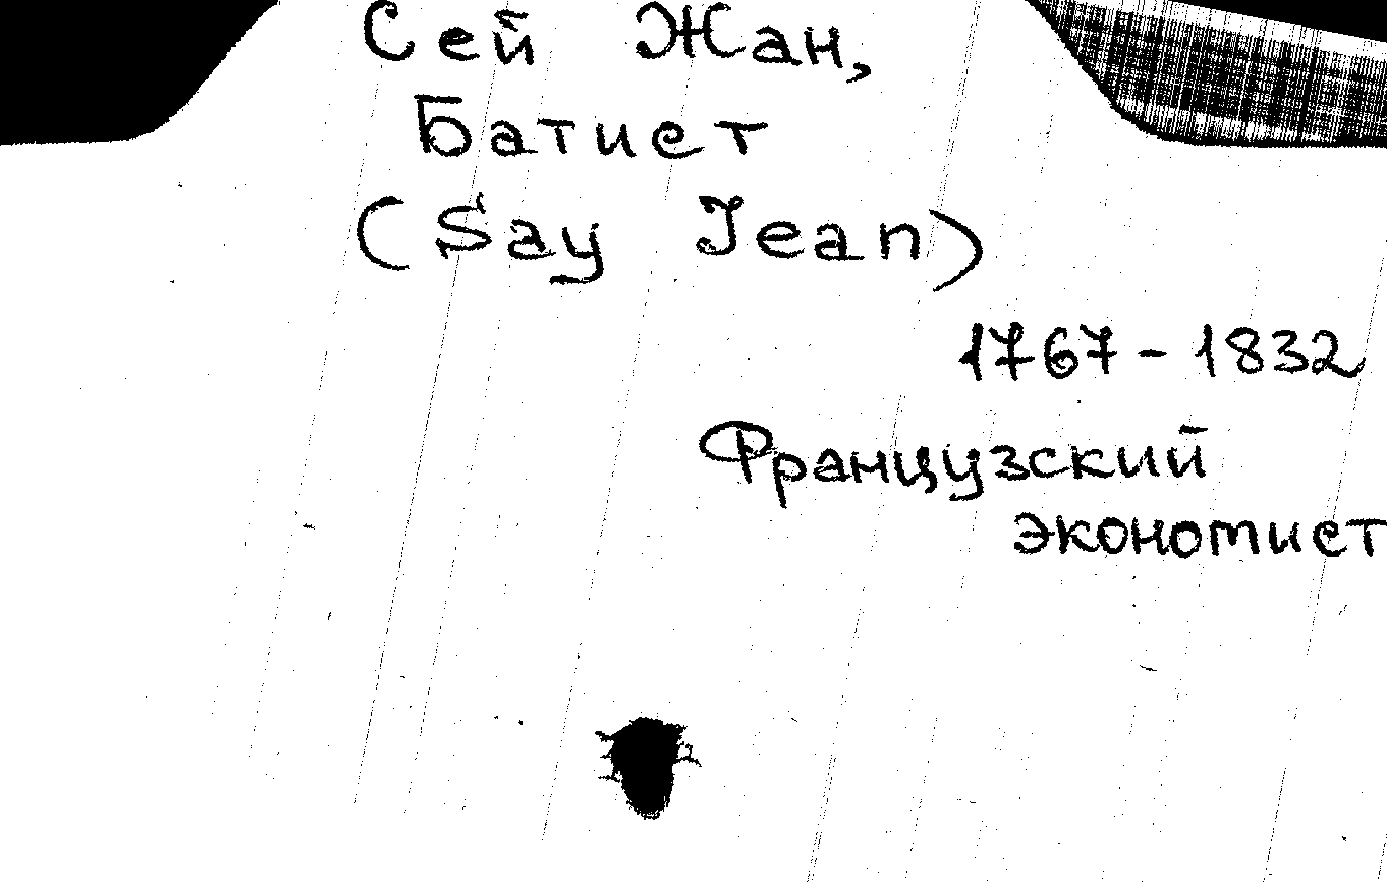 Сей Жан,
Батист
(Say Jean)
1767 - 1832
Французский
экономист